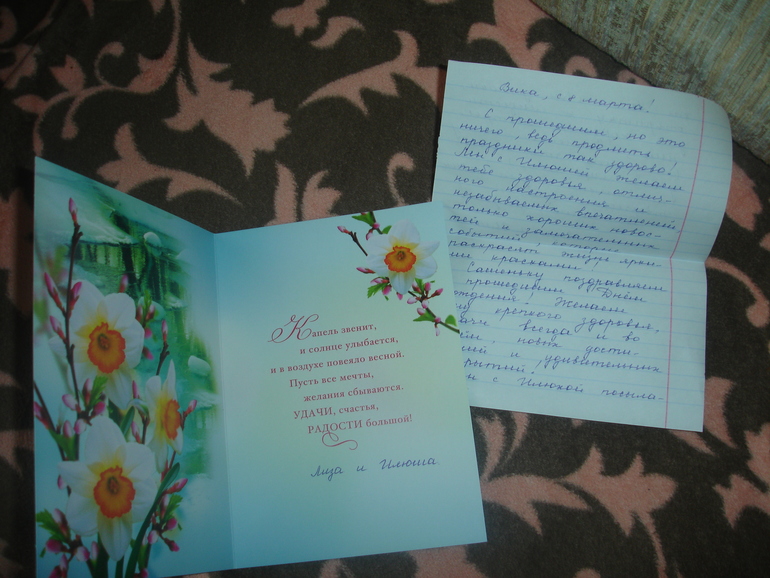 Капель звенит,
и солнце улыбается,
и в воздухе повеяло весной.
Пусть все мечты,
желания сбываются.
УДАЧИ, счастья,
РАДОСТИ большой!
Лиза и Илюша.
Вика, с 8 марта!
С прошедшим, но это
ничего, ведь продлить
праздники так здорово!
Мы с Илюшей желаем
тебе здоровья, отлич-
ного настроения и
незабываемых впечатлений,
только хороших новос-
тей и замечательных
событий, которые
раскрасят жизнь ярки-
ми красками!
Сашеньку поздравляем
прошедшим Днём
ждения! Желаем
му крепкого здоровья,
ачи всегда и во
новых дости-
ий и удивительных
рытий.
с Илюхой посыла-